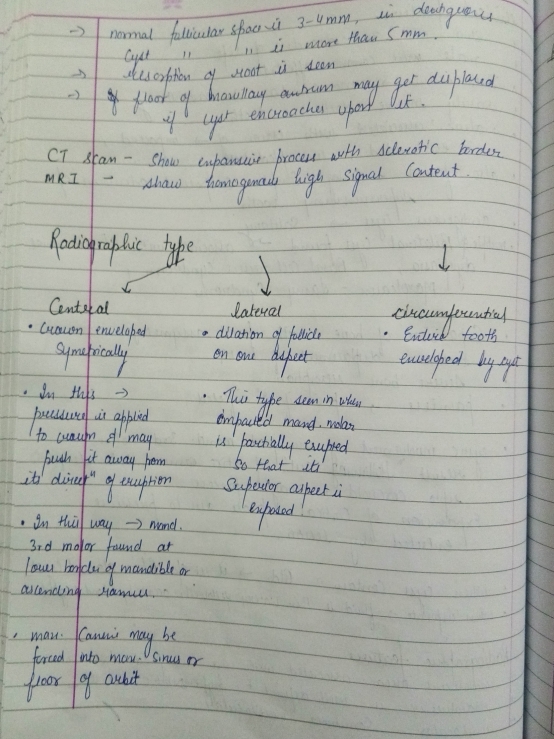 → normal follicular space is 3-4mm, in dentigerous
cyst " " is more than 5mm.
→ resorption of root is seen
→ of floor of maxillary antrum may get displaced
if cyst encroaches upon it.
CT scan - Show expansive process with sclerotic border
MRI - show homogenous high signal content.
Radiographic type
Central
• Crown enveloped
symetrically
• In this →
pressure is applied
to crown & may
push it away from
its direct" of eruption
• In this way → mand.
3rd molar found at
lower border of mandible or
ascending ramus.
• max. Canine may be
forced into max. sinus or
floor of orbit
lateral
• dilation of follicle
on one aspect
• This type seen in when
impacted mand. molar
is partially erupted
so that its
Superior aspect is
exposed
circumferential
• Entire tooth
enveloped by cyst